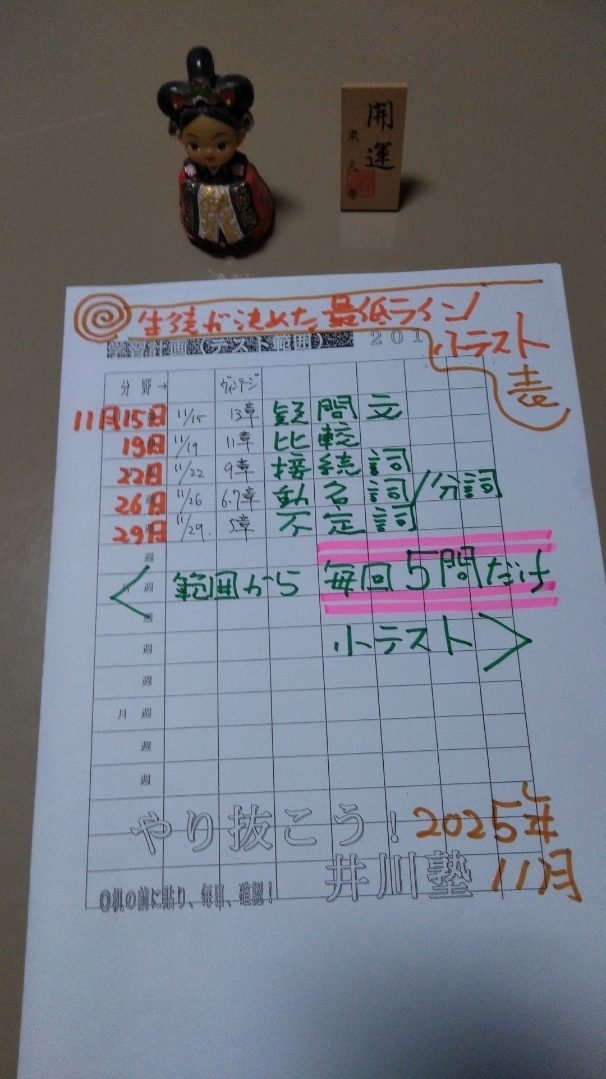 開運
東大寺
生徒が決めた最低ライン
学習計画(テスト範囲) 201
小テスト
表
分野→ ヴィンテージ
11月15日 11/15 13章 疑問文
19日 11/19 11章 比較
22日 11/22 9章 接続詞
26日 11/26 6.7章 動名詞/分詞
29日 11/29. 5章 不定詞
週
週
<範囲から 毎回5問だけ
週
週 小テスト>
週
月 週
週
週
やり抜こう! 2025年
井川塾 11月
◎机の前に貼り、毎日、確認!